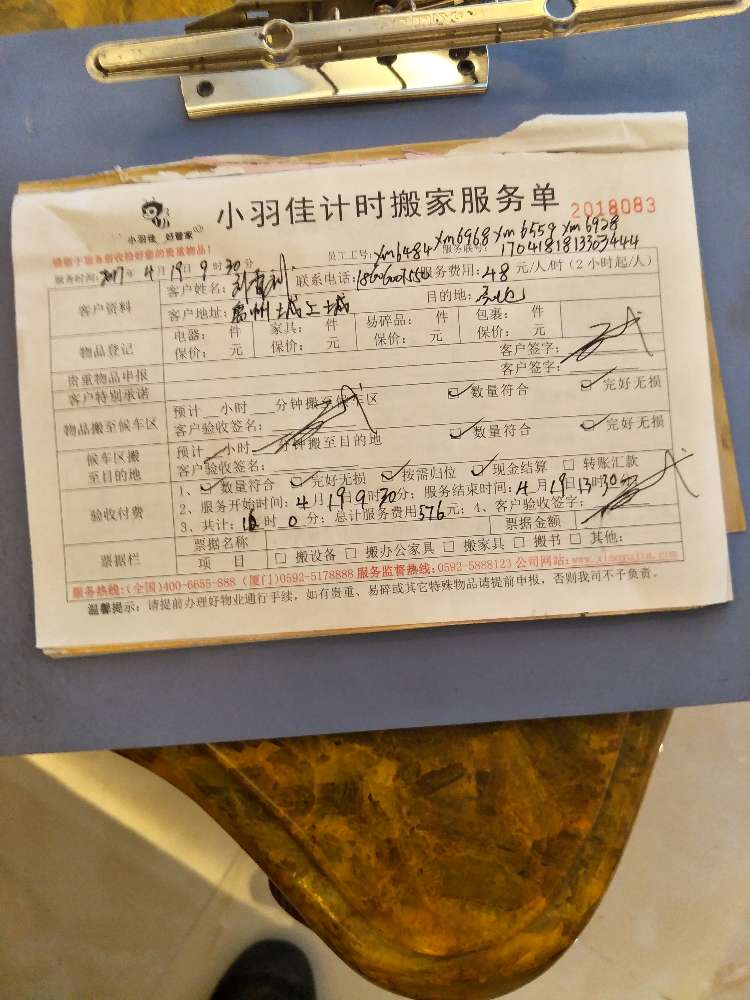 小羽佳 好管家
小羽佳计时搬家服务单
2018083
请您于服务前收拾好您的贵重物品!
员工工号: xm6484 xm6968 xm6559 xm6938
服务时间: 2017 年 4 月 19 日 9 时 30 分
服务联号: 170418181330 3444
客户资料
客户姓名:
联系电话:
服务费用: 48 元/人/时 (2小时起/人)
客户地址:
目的地:
物品登记
电器: 件 家具: 件 易碎品: 件 包裹: 件
保价: 元 保价: 元 保价: 元 保价: 元
贵重物品申报 客户签字:
客户特别承诺 客户签字:
物品搬至候车区
预计 小时 分钟搬至候车区 数量符合 完好无损
客户验收签名:
候车区搬至目的地
预计 小时 分钟搬至目的地 数量符合 完好无损
客户验收签名:
验收付费
1、 数量符合 完好无损 按需归位 现金结算 转账汇款
2、服务开始时间: 4 月 19 日 9 时 30 分; 服务结束时间: 4 月 19 日 13 时 30 分
3、共计: 时 0 分; 总计服务费用 576 元; 4、客户验收签字:
票据栏
票据名称 票据金额
项 目 搬设备 搬办公家具 搬家具 搬书 其他:
服务热线:(全国)400-6655-888 (厦门)0592-5178888 服务监督热线:0592-5888123 公司网站:
温馨提示: 请提前办理好物业通行手续, 如有贵重、易碎或其它特殊物品请提前申报, 否则我司不予负责。